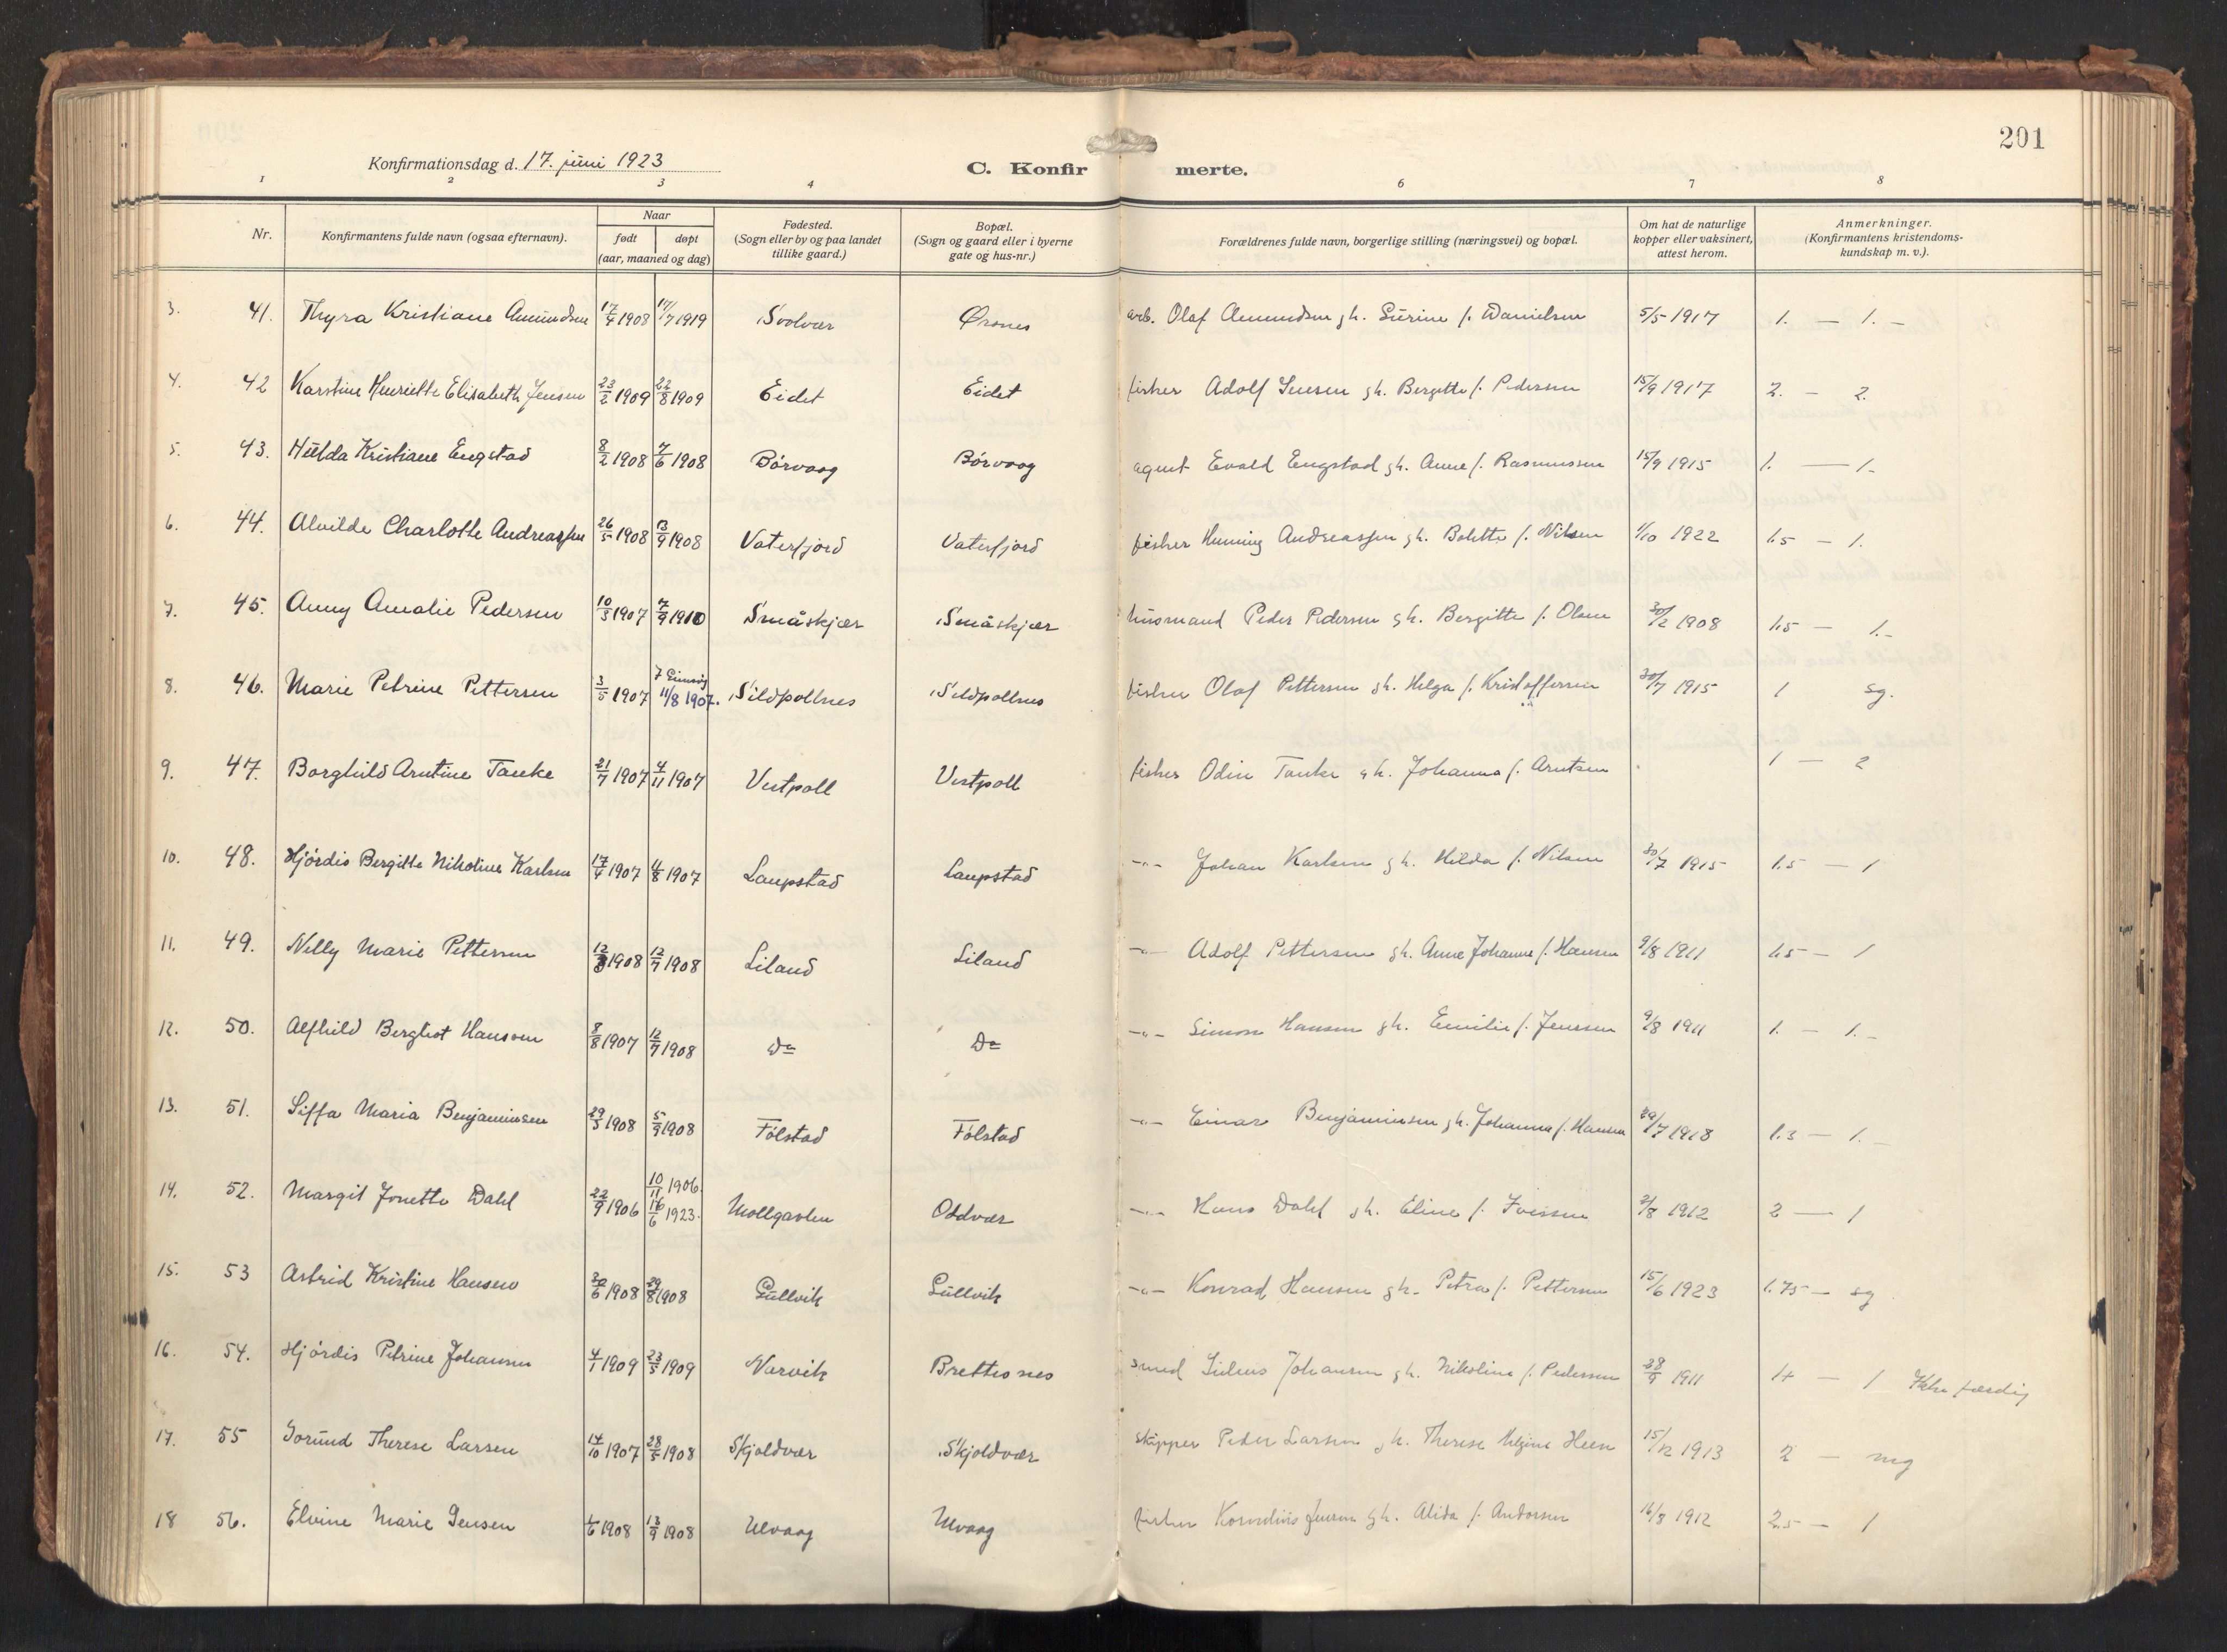 201
Konfirmationsdag d. 17. juni 1923
C. Konfirmerte.
1 2 3 4 6 7 8
Nr. Konfirmantens fulde navn (ogsaa efternavn). Naar født døpt (aar, maaned og dag) Fødested. (Sogn eller by og paa landet tillike gaard.) Bopæl. (Sogn og gaard eller i byerne gate og hus-nr.) Forældrenes fulde navn, borgerlige stilling (næringsvei) og bopæl. Om hat de naturlige kopper eller vaksinert, attest herom. Anmerkninger. (Konfirmantens kristendomskundskap m. v.).
3. 41. Thyra Kristiane Amundsen 17/4 1908 17/7 1919 Svolvær Ørsnes arb. Olaf Amundsen gh. Surine f. Danielsen 5/5 1917 1. — 1. –
4. 42 Karstine Henriette Elisabeth Jensen 23/2 1909 22/8 1909 Eidet Eidet fisker Adolf Jensen gh. Bergitte f. Pedersen 15/9 1917 2. – 2.
5. 43. Hulda Kristiane Engstad 8/2 1908 7/6 1908 Börvaag Börvaag agent Evald Engstad gh. Anne f. Rasmussen 15/9 1915 1. — 1.-
6. 44. Alvilde Charlotte Andreassen 26/5 1908 13/9 1908 Vaterfjord Vaterfjord fisher Henning Andreassen gh. Bolette f. Nilsen 1/10 1922 1.5 – 1.
7. 45. Anny Amalie Pedersen 10/3 1907 7/9 1910 Småskjær Småskjær husmand Peder Pedersen gh. Bergitte f. Olsen 30/2 1908 1.5 – 1.-
8. 46. Marie Petrine Pettersen 3/5 1907 11/8 1907. Sildpollnes Sildpollnes fisher Olaf Pettersen gh. Helga f. Kristoffersen 30/7 1915 1 sg.
9. 47. Borghild Arntine Tanke 21/7 1907 4/11 1907 Vestpoll Vestpoll fisher Odin Tanke gh. Johanna f. Arntsen 1 – 2
10. 48. Hjördis Bergitte Nikoline Karlsen 17/4 1907 4/8 1907 Laupstad Laupstad –"– Johan Karlsen gh. Hilda f. Nilsen 30/7 1915 1.5 – 1
11. 49. Nelly Marie Pettersen 12/3 1908 12/7 1908 Liland Liland –"– Adolf Pettersen gh. Anne Johanne f. Hansen 9/8 1911 1.5 – 1
12. 50. Alfhild Bergliot Hansen 8/8 1907 12/7 1908 Do Do –"– Simon Hansen gh. Emilie f. Jenssen 9/8 1911 1. – 1. –
13. 51. Siffa Maria Benjaminsen 29/5 1908 5/9 1908 Fölstad Fölstad –"– Einar Benjaminsen gh. Johanna f. Hansen 29/7 1918 1.3 – 1. –
14. 52. Margit Jonette Dahl 22/9 1906 10/11 1906. 16/6 1923. Mollgavlen Oddvær –"– Hans Dahl gh. Eline f. Iversen 2/8 1912 2 — 1
15. 53 Astrid Kristine Hansen 30/6 1908 29/8 1908 Gullvik Gullvik –"– Konrad Hansen gh. Petra f. Pettersen 15/6 1923 1.75 – sg
16. 54. Hjördis Petrine Johansen 4/1 1909 23/5 1909 Narvik Brettesnes smed Johansen gh. Nikoline f. Pedersen 28/9 1911 1+ – 1 Ikke færdig
17. 55 Jorund Therese Larsen 14/10 1907 28/5 1908 Skjoldvær Skjoldvær skipper Peder Larsen gh. Therese Helgine Heen 15/12 1913 2 – mg
18 56. Elvine Marie Jensen 1/6 1908 13/9 1908 Ulvaag Ulvaag fisher Kornelius Jensen gh. Alida f. Andorsen 16/8 1912 2.5 – 1